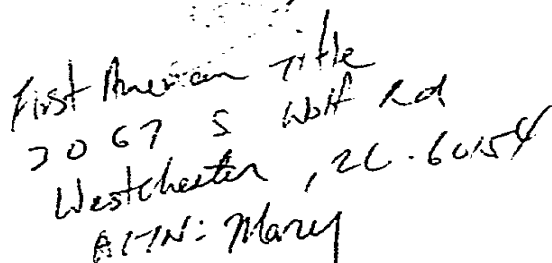 First American Title
2067 S Wolf Rd
Westchester, IL. 60154
ATTN: Mary